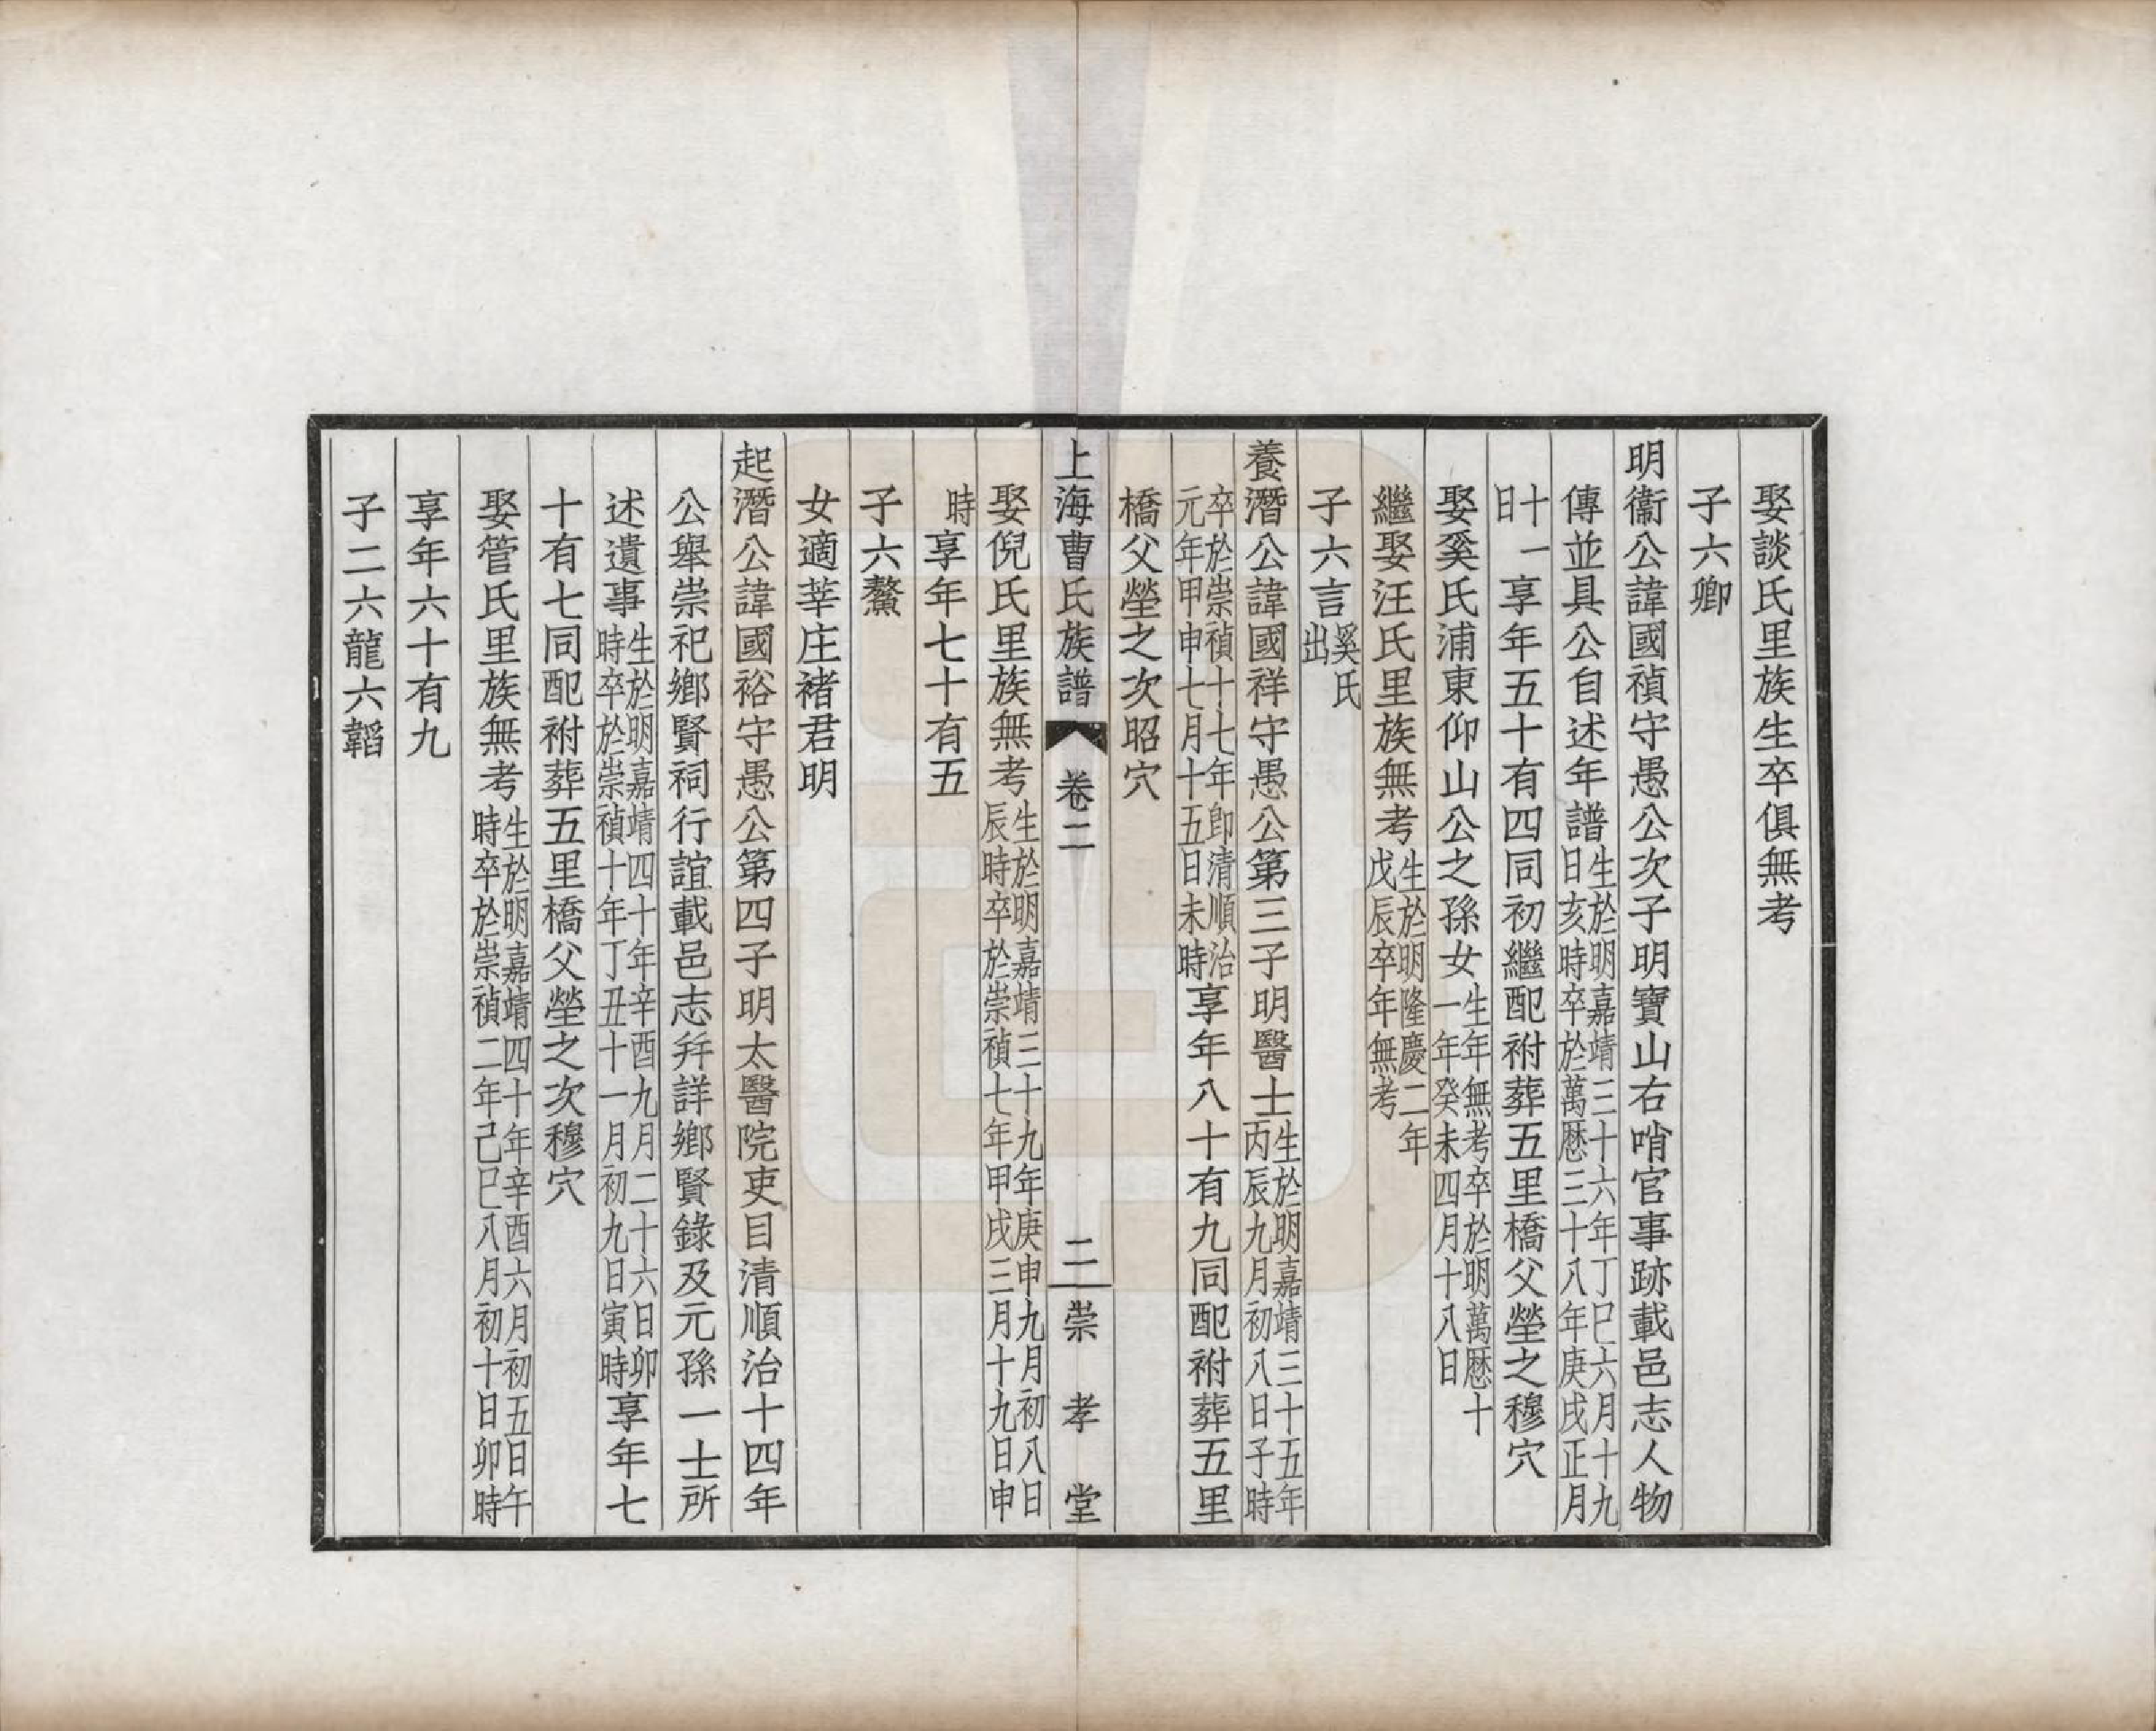 娶談氏里族生卒俱無考
子六卿
明衞公諱國禎守愚公次子明寶山右哨官事跡載邑志人物
傳並具公自述年譜生於明嘉靖三十六年丁巳六月十九日亥時卒於萬曆三十八年庚戌正月
十一日享年五十有四同初繼配祔葬五里橋父塋之穆穴
娶奚氏浦東仰山公之孫女生年無考卒於明萬曆十一年癸未四月十八日
繼娶汪氏里族無考生於明隆慶二年戊辰卒年無考
子六言奚氏出
養潛公諱國祥守愚公第三子明醫士生於明嘉靖三十五年丙辰九月初八日子時
卒於崇禎十七年即清順治元年甲申七月十五日未時享年八十有九同配祔葬五里
橋父塋之次昭穴
上海曹氏族譜 卷二 二 崇孝堂
娶倪氏里族無考生於明嘉靖三十九年庚申九月初八日辰時卒於崇禎七年甲戌三月十九日申
時享年七十有五
子六鰲
女適莘庄褚君明
起潛公諱國裕守愚公第四子明太醫院吏目清順治十四年
公舉崇祀鄉賢祠行誼載邑志并詳鄉賢錄及元孫一士所
述遺事生於明嘉靖四十年辛酉九月二十六日卯時卒於崇禎十年丁丑十一月初九日寅時享年七
十有七同配祔葬五里橋父塋之次穆穴
娶管氏里族無考生於明嘉靖四十年辛酉六月初五日午時卒於崇禎二年己巳八月初十日卯時
享年六十有九
子二六龍六韜